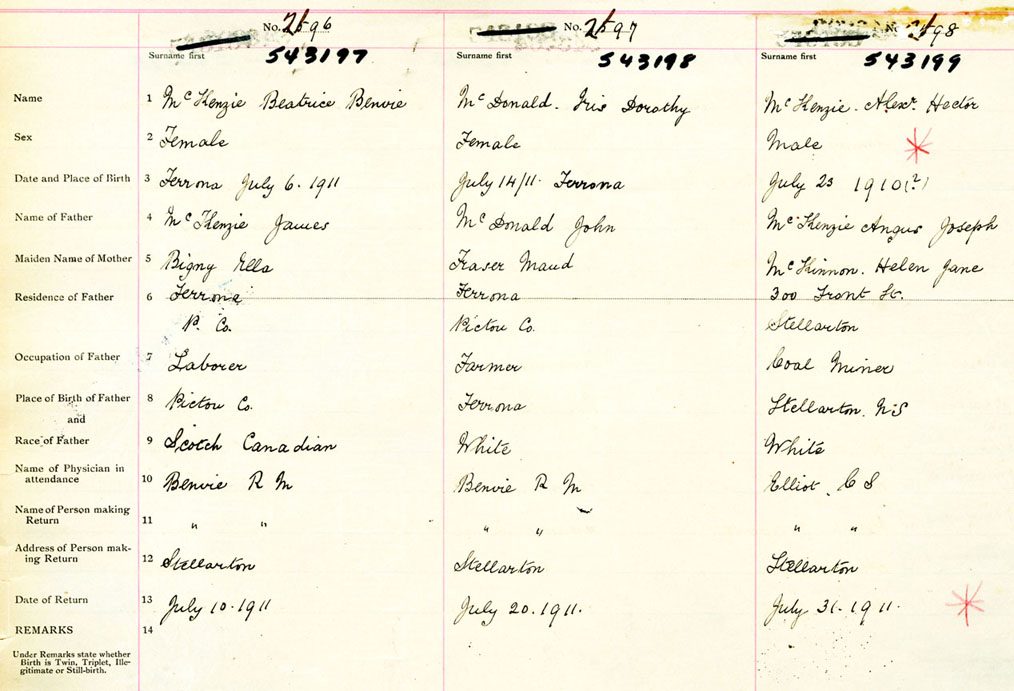 No. 2596 No. 2597 No. 2598
Surname first 543197 Surname first 543198 Surname first 543199
Name 1 McKenzie Beatrice Benvie McDonald. Iris Dorothy McKenzie. Alexr. Hector
Sex 2 Female Female Male
Date and Place of Birth 3 Ferrona July 6. 1911 July 14/11. Ferrona July 23 1910(?)
Name of Father 4 McKenzie James McDonald John McKenzie Angus Joseph
Maiden Name of Mother 5 Bigny Ella Fraser Maud McKinnon. Helen Jane
Residence of Father 6 Ferrona Ferrona 300 Front St.
P. Co. Pictou Co. Stellarton
Occupation of Father 7 Laborer Farmer Coal Miner
Place of Birth of Father 8 Pictou Co. Ferrona Stellarton. NS
and
Race of Father 9 Scotch Canadian White White
Name of Physician in
attendance 10 Benvie R M Benvie R M Elliot. C S
Name of Person making
Return 11 " " " " " "
Address of Person mak-
ing Return 12 Stellarton Stellarton Stellarton
Date of Return 13 July 10. 1911 July 20. 1911. July 31. 1911.
REMARKS 14
Under Remarks state whether
Birth is Twin, Triplet, Ille-
gitimate or Still-birth.